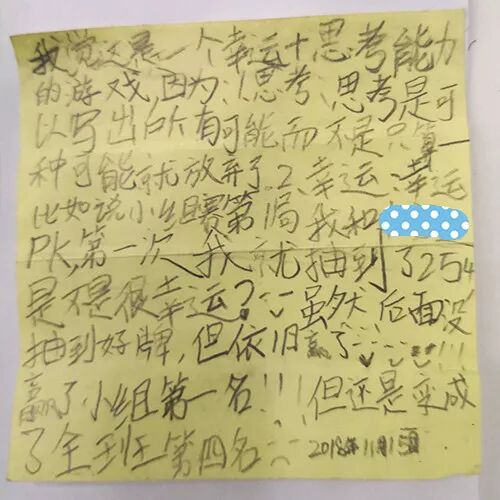 我觉这是一个幸运+思考能力
的游戏,因为1思考、思考是可
以写出所有可能而不是只算一
种可能就放弃了。2、幸运、幸运
比如说小组赛第1局我和
PK,第一次我就抽到了254
是不是很幸运?虽然后面没
抽到好牌,但依旧赢了……!!!
赢了小组第一名!!!但还是
了全班第四名
2018年11月15日